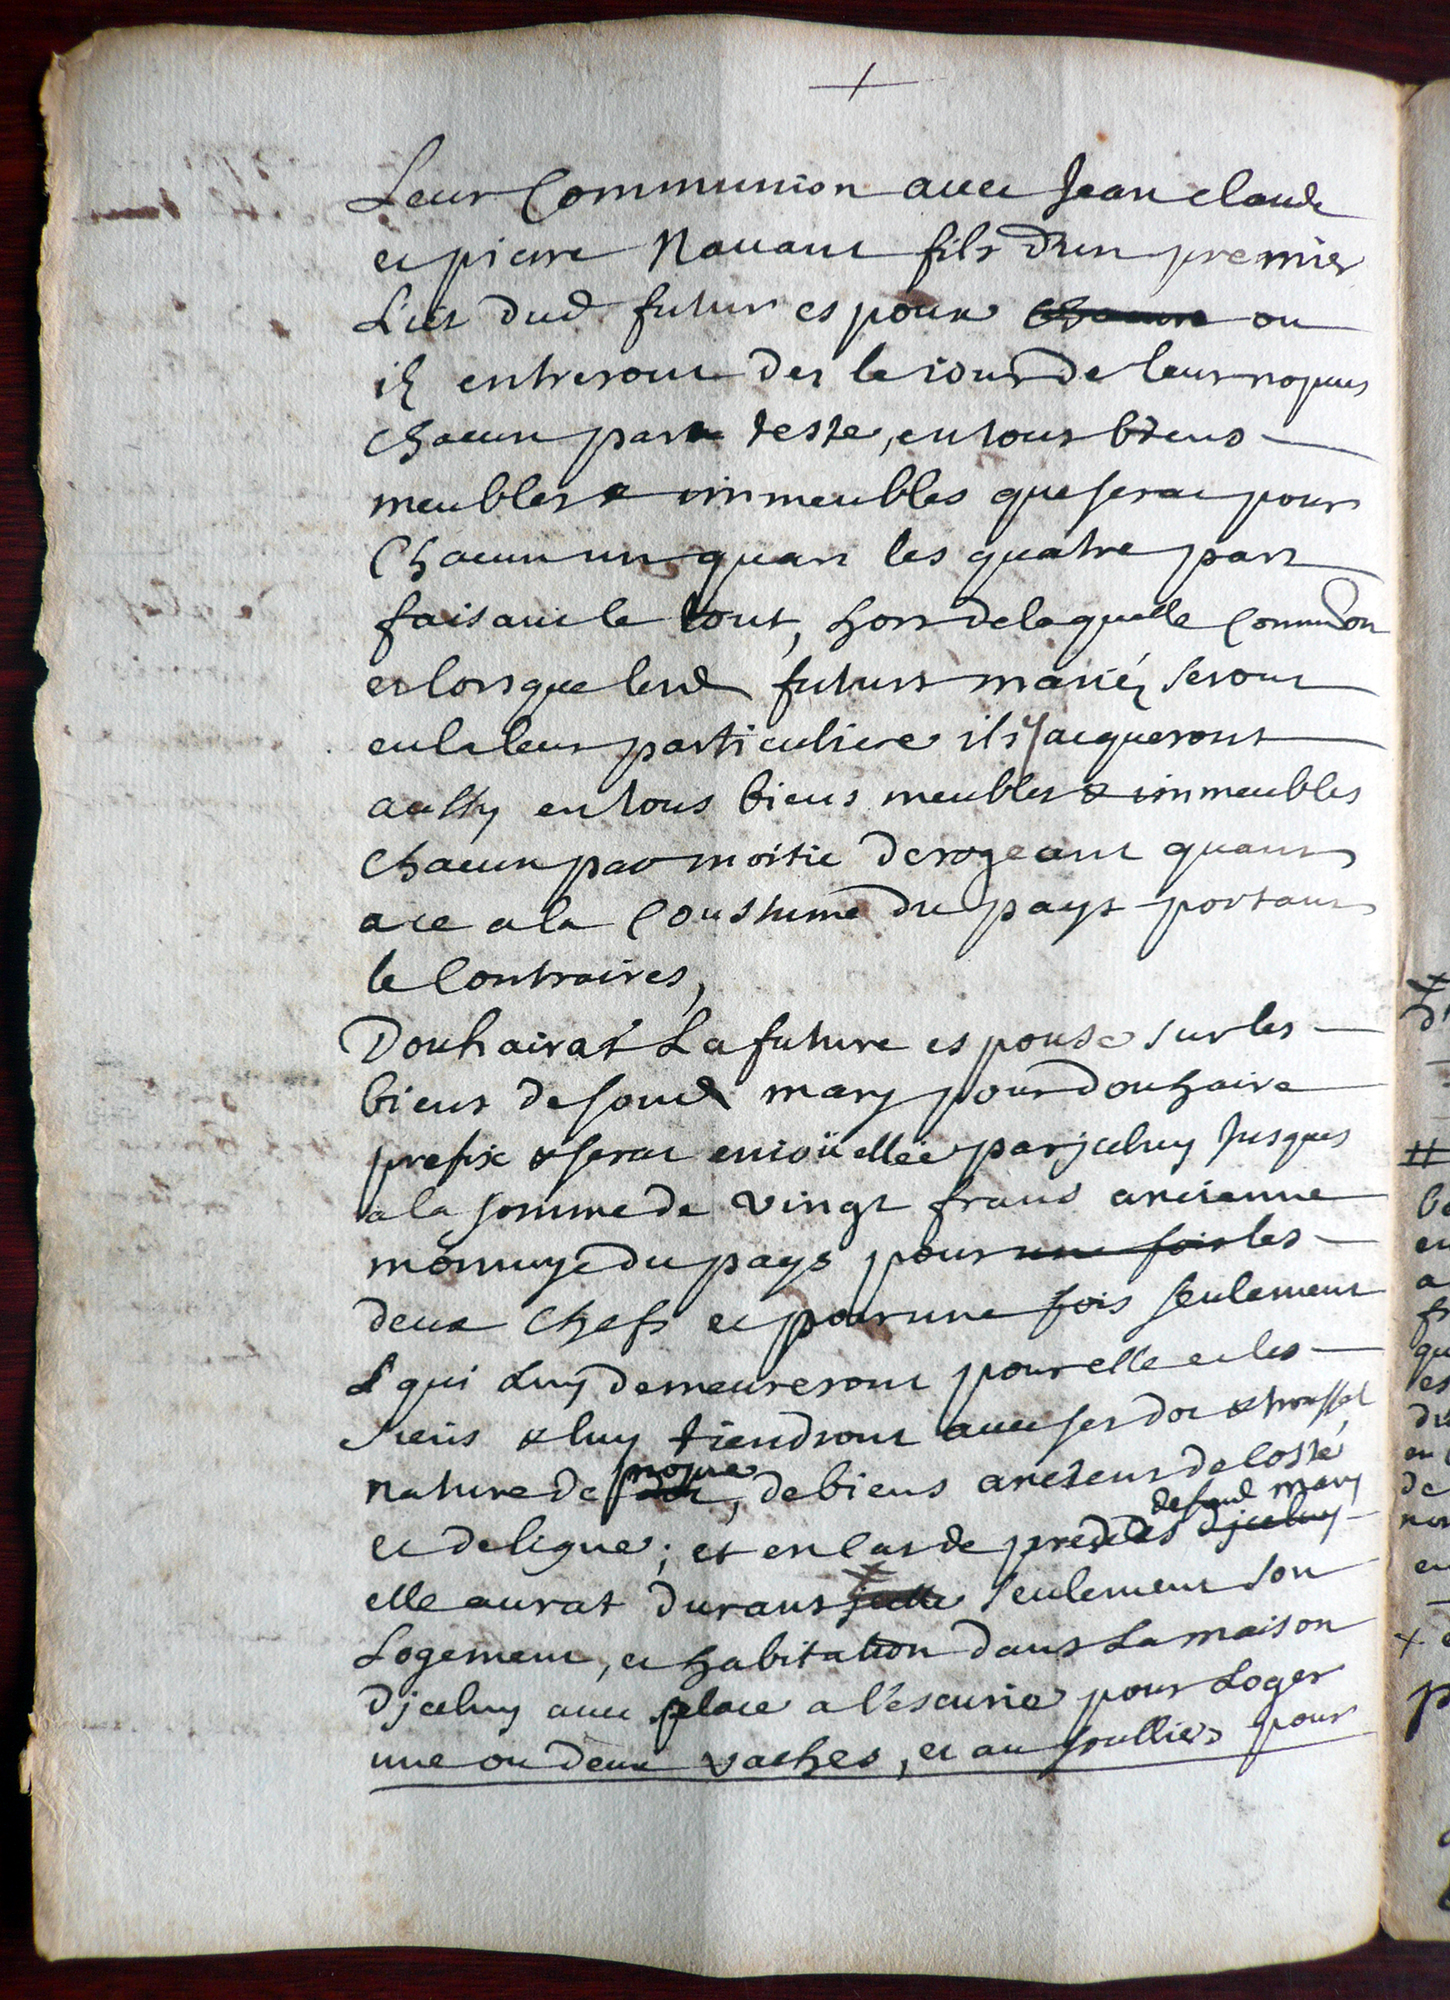 Leur Communion avec Jean claude
et pierre Navant fils d'un premier
Lict dud futur espoux ou
ilz entreront des le iour de leur nopces
chacun par teste, en tous biens
meubles & immeubles que serat pour
chacun un quart les quatre part
faisant le tout, hors de laquelle Communion
et lorsque lesd futurs mariéz seront
en la leur particuliere ils y acqueront
aussy en tous biens meubles & immeubles
chacun par moitie derogeant quant
a ce a la Coustume du pays portant
le Contraires,
Douhairat La future espouse sur les
biens de soud mary pour douhaire
prefix & serat enioüellée par jceluy Jusques
a la somme de vingt frans ancienne
monnoye du pays pour une fois les
deux chefs et pour une fois seulement
& qui Luy demeureront pour elle et les
siens & luy tiendront avec ses dot & troussel
nature de nopce, de biens anciens de Costé
et de ligne; et en Cas de predeces desoud mary djceluy
elle aurat durant seulement son
Logement, et habitation dans La maison
djceluy avec place a l'escurie pour Loger
une ou deux vaches, et au soullier pour